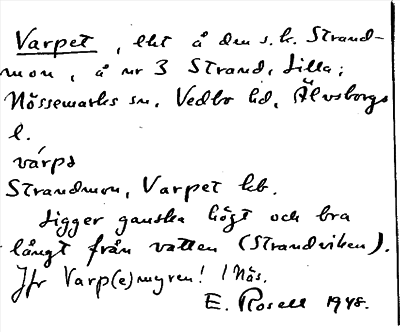 Varpet, lht å den s. k. Strand-
mon, å nr 3 Strand, Lilla;
Nössemarks sn, Vedbo hd, Älvsborgs
l.
várpə
Strandmon, Varpet hb.
Ligger ganska högt och bra
långt från vatten (Strandviken).
Jfr Varp(e)myren! / Näs.
E. Rosell 1948.